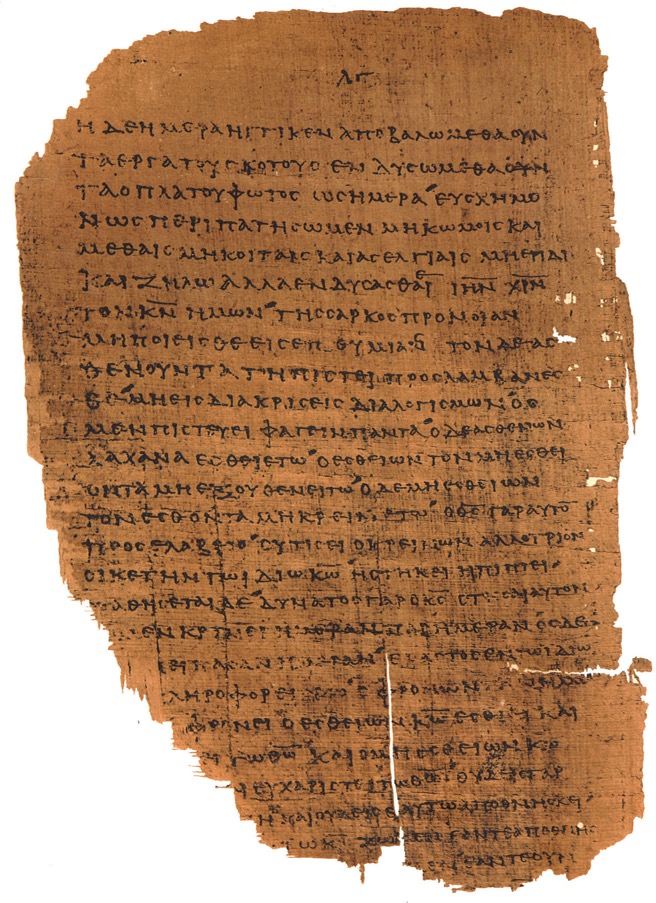 ΛΓ
Η ΔΕ ΗΜΕΡΑ ΗΓΓΙΚΕΝ ΑΠΟΒΑΛΩΜΕΘΑ ΟΥΝ
ΤΑ ΕΡΓΑ ΤΟΥ ϹΚΟΤΟΥϹ ΕΝΔΥϹΩΜΕΘΑ ΟΥΝ
ΤΑ ΟΠΛΑ ΤΟΥ ΦΩΤΟϹ ΩϹ ΗΜΕΡΑ ΕΥϹΧΗΜΟ
ΝΩϹ ΠΕΡΙΠΑΤΗϹΩΜΕΝ ΜΗ ΚΩΜΟΙϹ ΚΑΙ
ΜΕΘΑΙϹ ΜΗ ΚΟΙΤΑΙϹ ΚΑΙ ΑϹΕΛΓΙΑΙϹ ΜΗ ΕΡΙΔΙ
ΚΑΙ ΖΗΛΩ ΑΛΛΑ ΕΝΔΥϹΑϹΘΑΙ ΙΗΝ ΧΡΝ
ΤΟΝ ΚΝ ΗΜΩΝ ΤΗϹ ϹΑΡΚΟϹ ΠΡΟΝΟΙΑΝ
ΜΗ ΠΟΙΕΙϹΘΕ ΕΙϹ ΕΠΙΘΥΜΙΑϹ ΤΟΝ ΔΕ ΑϹ
ΘΕΝΟΥΝΤΑ ΤΗ ΠΙϹΤΕΙ ΠΡΟϹΛΑΜΒΑΝΕϹ
ΘΕ ΜΗ ΕΙϹ ΔΙΑΚΡΙϹΕΙϹ ΔΙΑΛΟΓΙϹΜΩΝ ΟϹ
ΜΕΝ ΠΙϹΤΕΥΕΙ ΦΑΓΕΙΝ ΠΑΝΤΑ Ο ΔΕ ΑϹΘΕΝΩΝ
ΛΑΧΑΝΑ ΕϹΘΙΕΤΩ Ο ΕϹΘΕΙΩΝ ΤΟΝ ΜΗ ΕϹΘΕΙ
ΟΝΤΑ ΜΗ ΕΞΟΥΘΕΝΕΙΤΩ Ο ΔΕ ΜΗ ΕϹΘΕΙΩΝ
ΤΟΝ ΕϹΘΟΝΤΑ ΜΗ ΚΡΕΙΝΕΤΩ Ο ΘϹ ΓΑΡ ΑΥΤΟ
ΠΡΟϹΕΛΑΒΕΤΟ ϹΥ ΤΙϹ ΕΙ Ο ΚΡΕΙΝΩΝ ΑΛΛΟΤΡΙΟΝ
ΟΙΚΕΤΗΝ ΤΩ ΙΔΙΩ ΚΩ ϹΤΗΚΕΙ Η ΠΙΠΤΕΙ
ϹΤΑΘΗϹΕΤΑΙ ΔΕ ΔΥΝΑΤΟϹ ΓΑΡ Ο ΚϹ ϹΤΗϹΑΙ ΑΥΤΟΝ
ΜΕΝ ΚΡΙΝΕΙ ΗΜΕΡΑΝ ΠΑΡ ΗΜΕΡΑΝ ΟϹ ΔΕ
ΠΑϹΑΝ ΗΜΕΡΑΝ ΕΚΑϹΤΟϹ ΕΝ ΤΩ ΙΔΙΩ
ΠΛΗΡΟΦΟΡΕΙ Ο ΦΡΟΝΩΝ
ΦΡΟΝΕΙ Ο ΕϹΘΕΙΩΝ ΚΩ ΕϹΘΕΙ ΚΑΙ
ΤΩ ΘΩ ΚΑΙ Ο ΜΗ ΕϹΘΕΙΩΝ ΚΩ
ΕΥΧΑΡΙϹΤΕΙ ΤΩ ΘΩ ΟΥΔΕΙϹ ΓΑΡ
ΚΑΙ ΟΥΔΕΙϹ ΕΑΥΤΩ ΑΠΟΘΝΗϹΚΕΙ
ΤΩ ΚΩ ΕΑΝ ΤΕ ΑΠΟΘΝΗϹ
ΕΑΝ ΤΕ ΟΥΝ